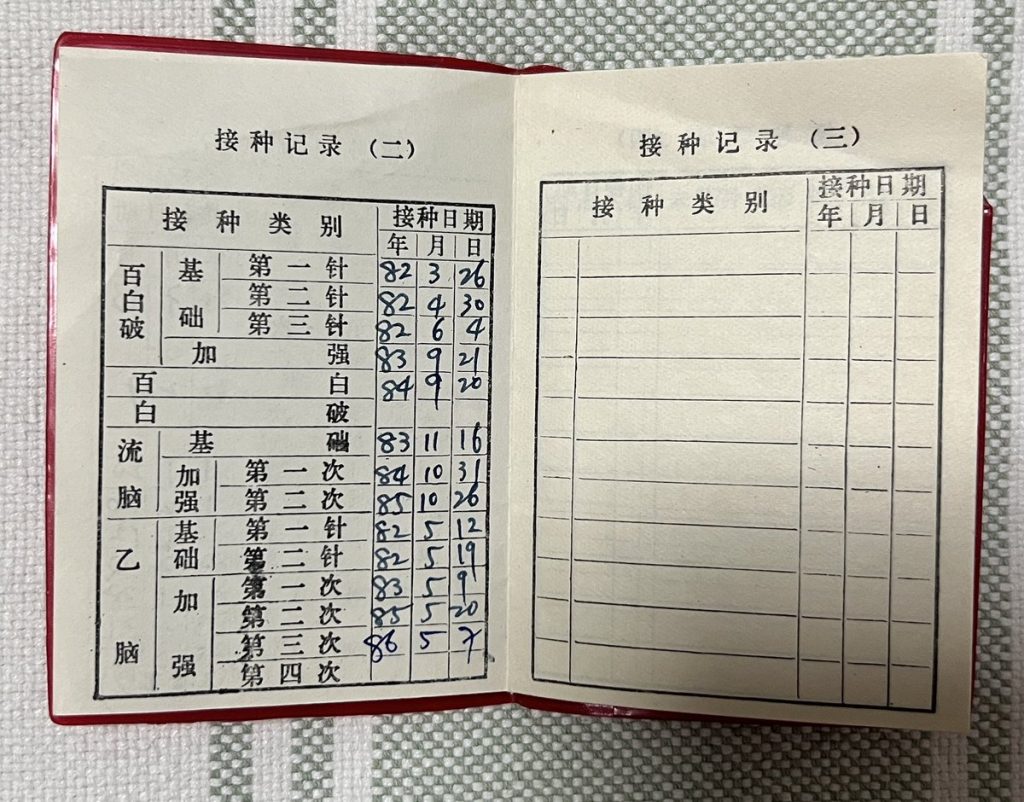 接种记录（二）
接种类别 接种日期
年 月 日
百白破 基础 第一针 82 3 26
第二针 82 4 30
第三针 82 6 4
加强 83 9 21
百白 84 9 20
白破
流脑 基础 83 11 16
加强 第一次 84 10 31
第二次 85 10 26
乙脑 基础 第一针 82 5 12
第二针 82 5 19
加强 第一次 83 5 9
第二次 85 5 20
第三次 86 5 7
第四次
接种记录（三）
接种类别 接种日期
年 月 日